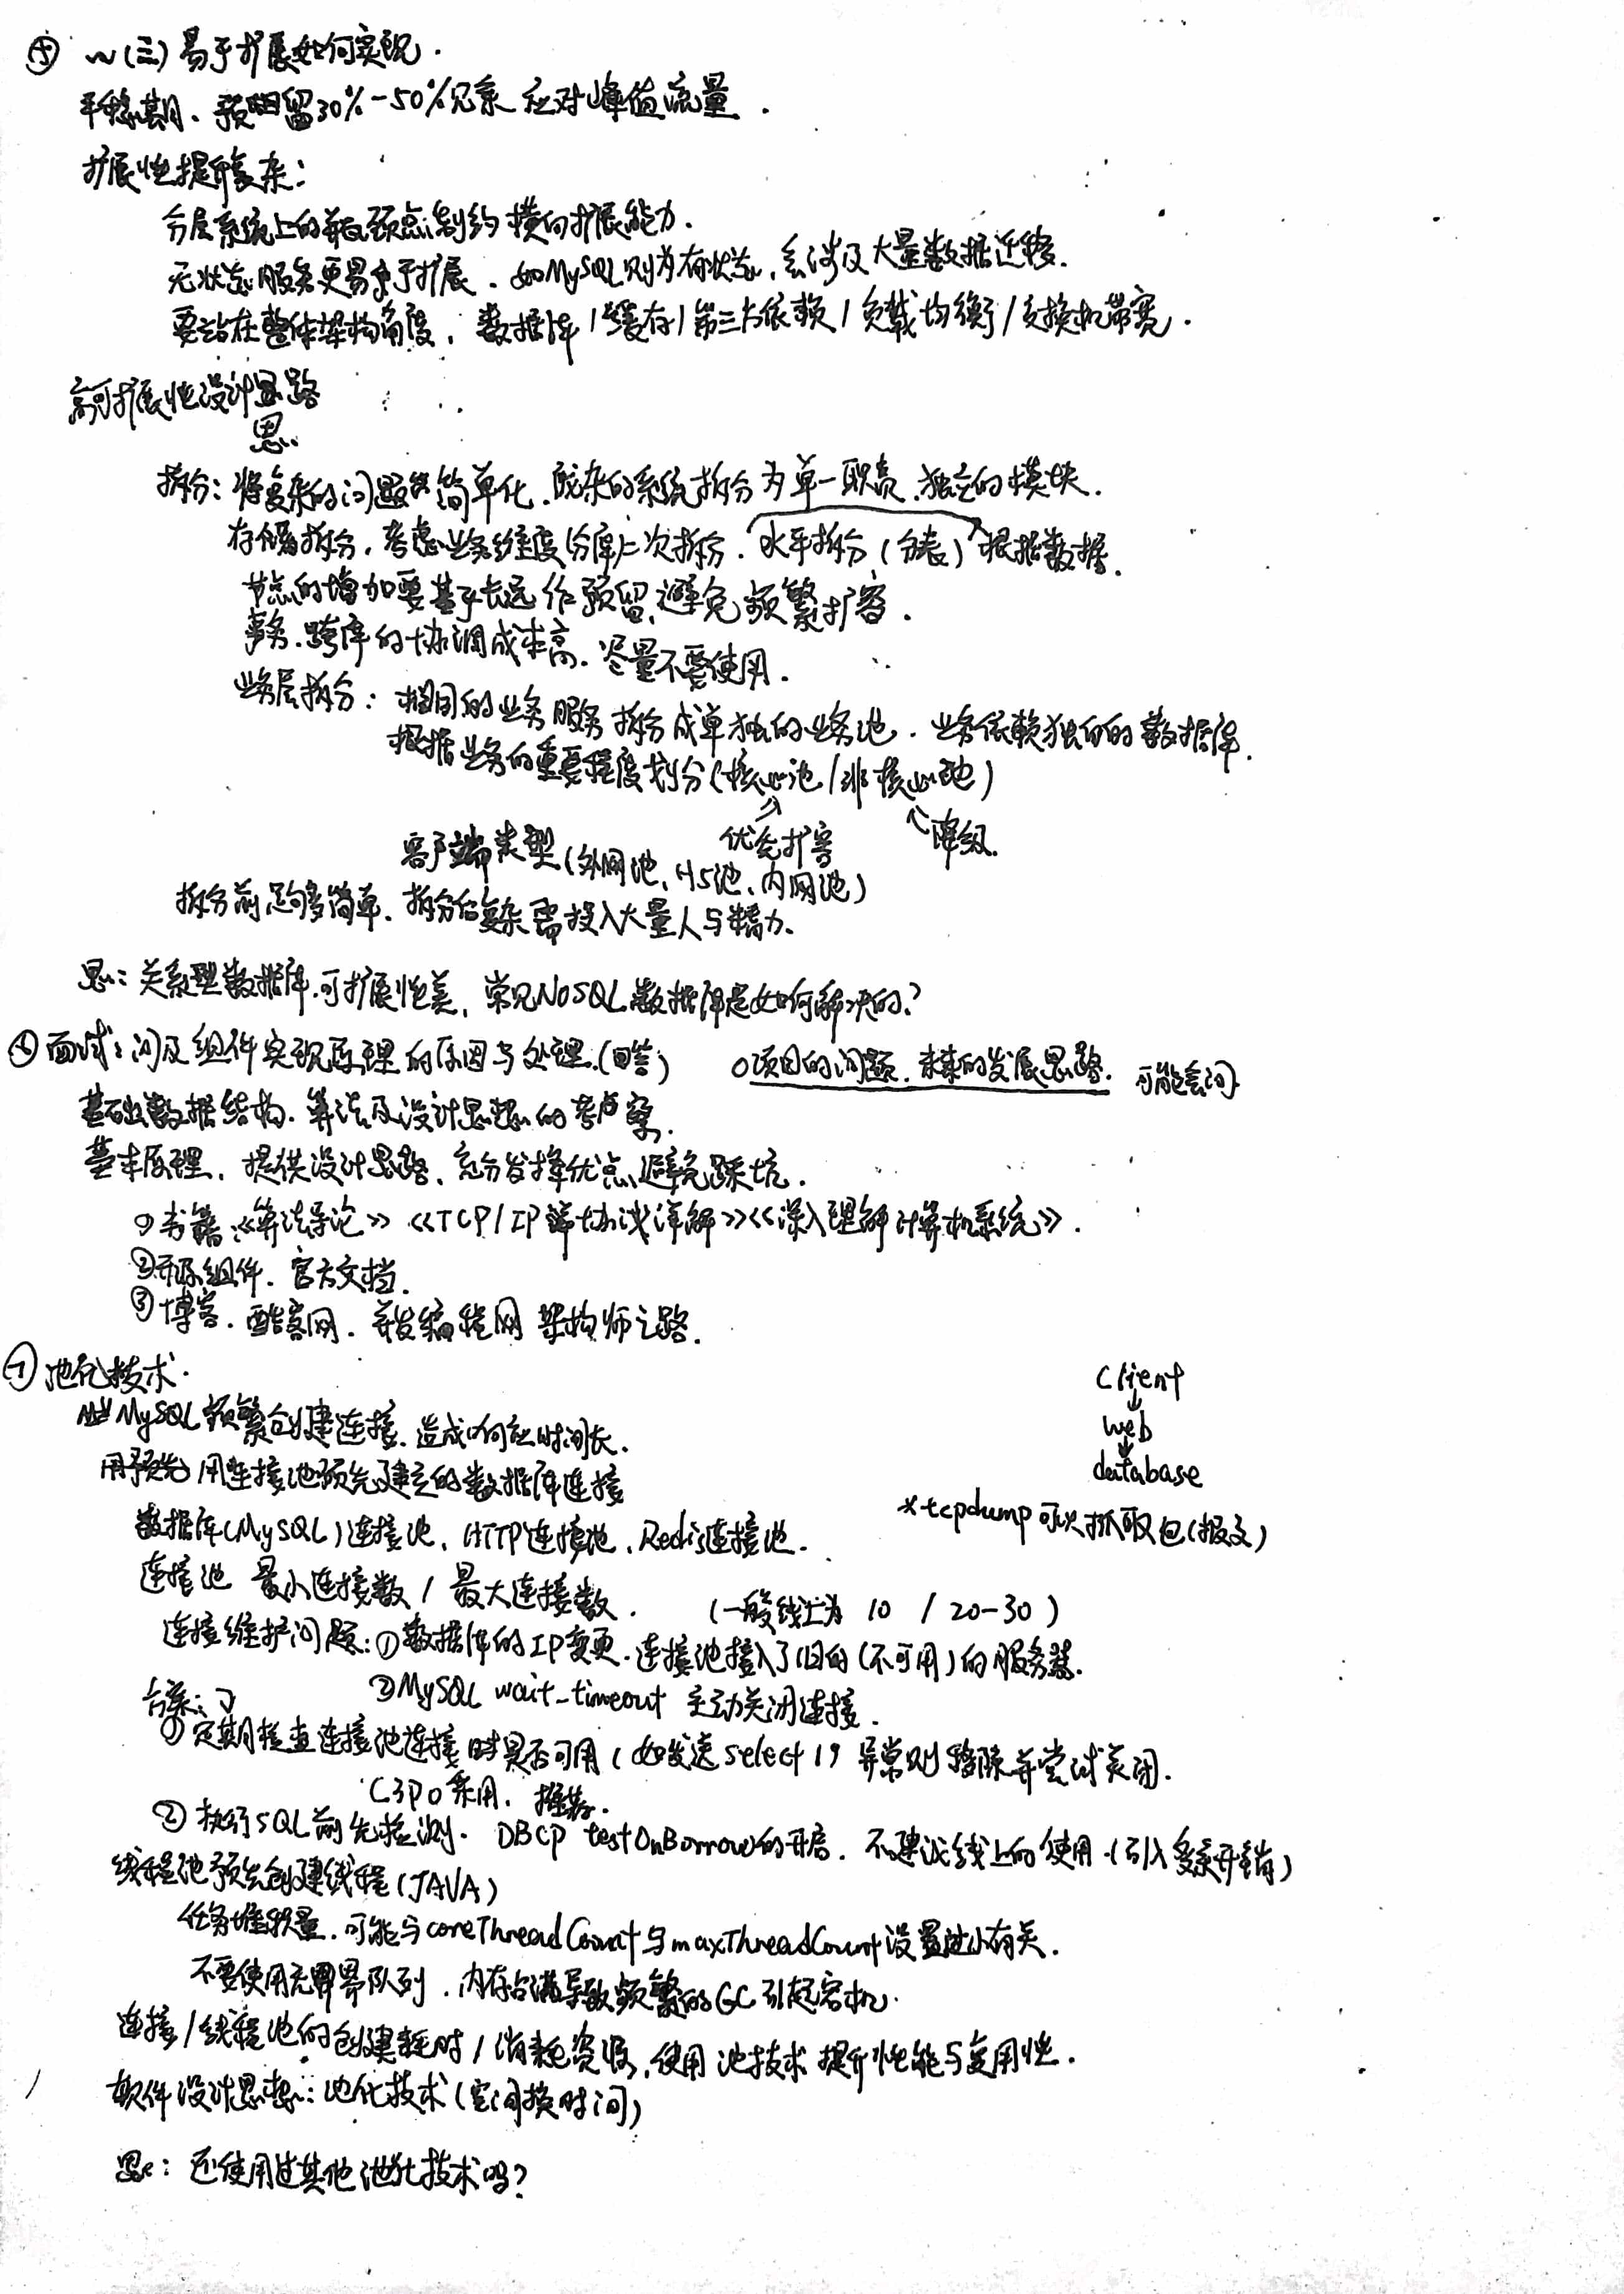 ⑤ ~(三)易于扩展如何实现.
平稳期、预留30%-50%冗余 应对峰值流量.
扩展性提升复杂:
分层系统上的并发颈点制约横向扩展能力.
无状态服务更易于扩展. 如MySQL则为有状态, 会涉及大量数据迁移.
要站在整体架构角度, 数据库/缓存/第三方依赖/负载均衡/交换机带宽.
高可扩展性设计思路
思
拆分: 将复杂的问题简单化. 庞杂的系统拆分为单一职责、独立的模块.
存储拆分, 考虑业务维度(分库)二次拆分. 水平拆分(分表)根据数据.
节点的增加要基于长远作预留, 避免频繁扩容.
事务. 跨库的协调成本高. 尽量不要使用.
业务层拆分: 相同的业务服务拆分成单独的业务池. 业务依赖独自的数据库.
根据业务的重要程度划分(核心池/非核心池)
优先扩容 降级.
客户端类型(外网池、H5池、内网池)
拆分前足够简单. 拆分后复杂需投入大量人与精力.
思: 关系型数据库. 可扩展性差, 常见NoSQL数据库是如何解决的?
⑥ 面试: 问及组件实现原理的原因与处理.(回答) 项目的问题. 未来的发展思路. 可能会问
基础数据结构. 算法及设计思想的考虑.
基本原理. 提供设计思路. 充分发挥优点, 避免踩坑.
① 书籍:《算法导论》《TCP/IP 协议详解》《深入理解计算机系统》.
②开源组件. 官方文档.
③博客. 酷客网. 并发编程网 架构师之路.
⑦ 池化技术.
MySQL频繁创建连接. 造成响应时间长.
用连接池预先建立的数据库连接
数据库(MySQL)连接池, HTTP连接池, Redis连接池.
Client
↓
web
↓
database
*tcpdump 可以抓取包(报文)
连接池 最小连接数 / 最大连接数. (一般线上为 10 / 20-30)
连接维护问题: ①数据库的IP变更. 连接池接入了旧的(不可用)的服务器.
②MySQL wait_timeout 主动关闭连接.
方案:
① 定期检查连接池连接时是否可用(如发送select 1) 异常则移除并尝试关闭.
C3P0采用. 推荐.
② 执行SQL前先检测. DBCP testOnBorrow的开启. 不建议线上的使用.(引入多余开销)
线程池预先创建线程(JAVA)
任务堆积量. 可能与coreThreadCount与maxThreadCount设置过小有关.
不要使用无界队列. 内存占满导致频繁的GC引起宕机.
连接/线程池的创建耗时/消耗资源, 使用池技术提升性能与复用性.
软件设计思想: 池化技术(空间换时间)
思: 还使用过其他池化技术吗?